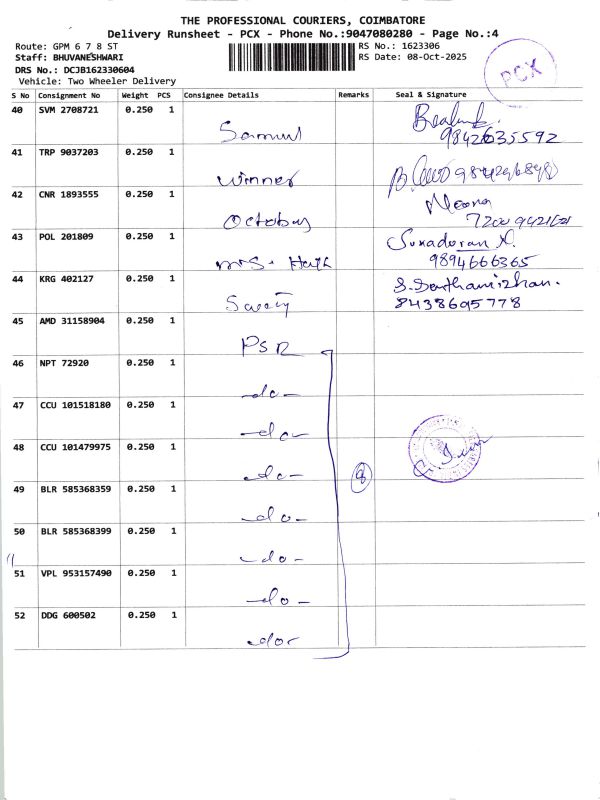 THE PROFESSIONAL COURIERS, COIMBATORE
Delivery Runsheet - PCX - Phone No.:9047080280 - Page No.:4
Route: GPM 6 7 8 ST
Staff: BHUVANESHWARI
DRS No.: DCJB162330604
Vehicle: Two Wheeler Delivery
RS No.: 1623306
RS Date: 08-Oct-2025
PCX
S No Consignment No Weight PCS Consignee Details Remarks Seal & Signature
40 SVM 2708721 0.250 1
Samuel
9842635592
41 TRP 9037203 0.250 1
Winner
42 CNR 1893555 0.250 1
October
Meena
43 POL 201809 0.250 1
Mrs. 
9894666365
44 KRG 402127 0.250 1
S. Senthamizhan.
8438695778
45 AMD 31158904 0.250 1
PSR
46 NPT 72920 0.250 1
-do-
47 CCU 101518180 0.250 1
-do-
48 CCU 101479975 0.250 1
-do-
8
49 BLR 585368359 0.250 1
-do-
50 BLR 585368399 0.250 1
-do-
51 VPL 953157490 0.250 1
-do-
52 DDG 600502 0.250 1
-do-